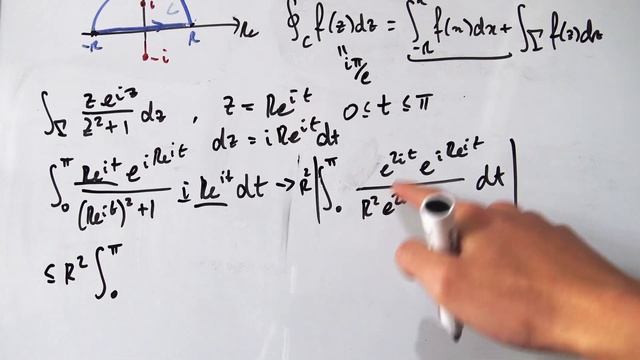 i
C
-R R Re
-i
∮_C f(z)dz = ∫_{-R}^{R} f(x)dx + ∫_Γ f(z)dz
"
iπ/e
∫_Γ ze^{iz}/(z²+1) dz , z = Re^{it} 0 ≤ t ≤ π
dz = iRe^{it}dt
∫_0^π Re^{it} e^{iRe^{it}}/((Re^{it})²+1) i Re^{it}dt → R² |∫_0^π e^{2it} e^{iRe^{it}}/(R²e^{2i dt|
≤ R² ∫_0^π